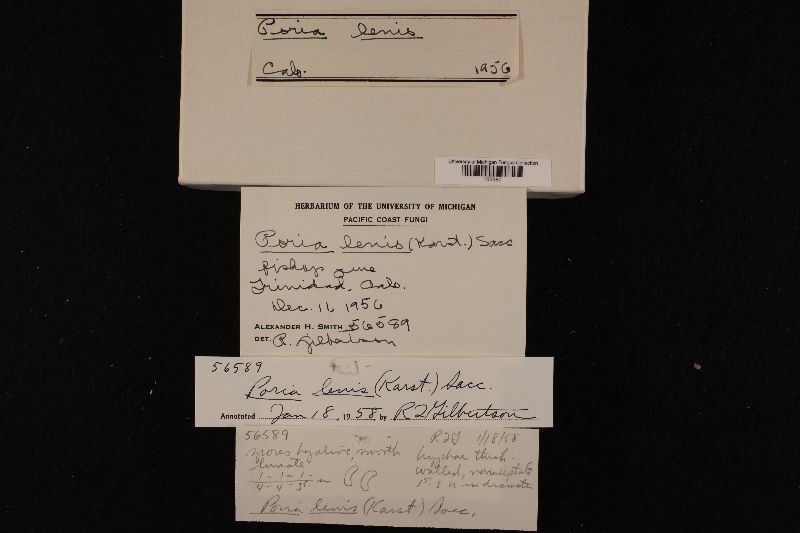 Poria lenis
Calif.
1956
University of Michigan Fungus Collection
HERBARIUM OF THE UNIVERSITY OF MICHIGAN
PACIFIC COAST FUNGI
Poria lenis (Karst.) Sacc
Trinidad, Calif.
Dec. 11, 1956
ALEXANDER H. SMITH 56589
DET. R. Gilbertson
56589
Poria lenis (Karst.) Sacc.
Annotated Jan 18, 1958 by R L Gilbertson
56589 RLG 1/18/58
spores hyaline, smooth
lunate
hyphae thick-
walled, nonseptate
Poria lenis (Karst) Sacc.